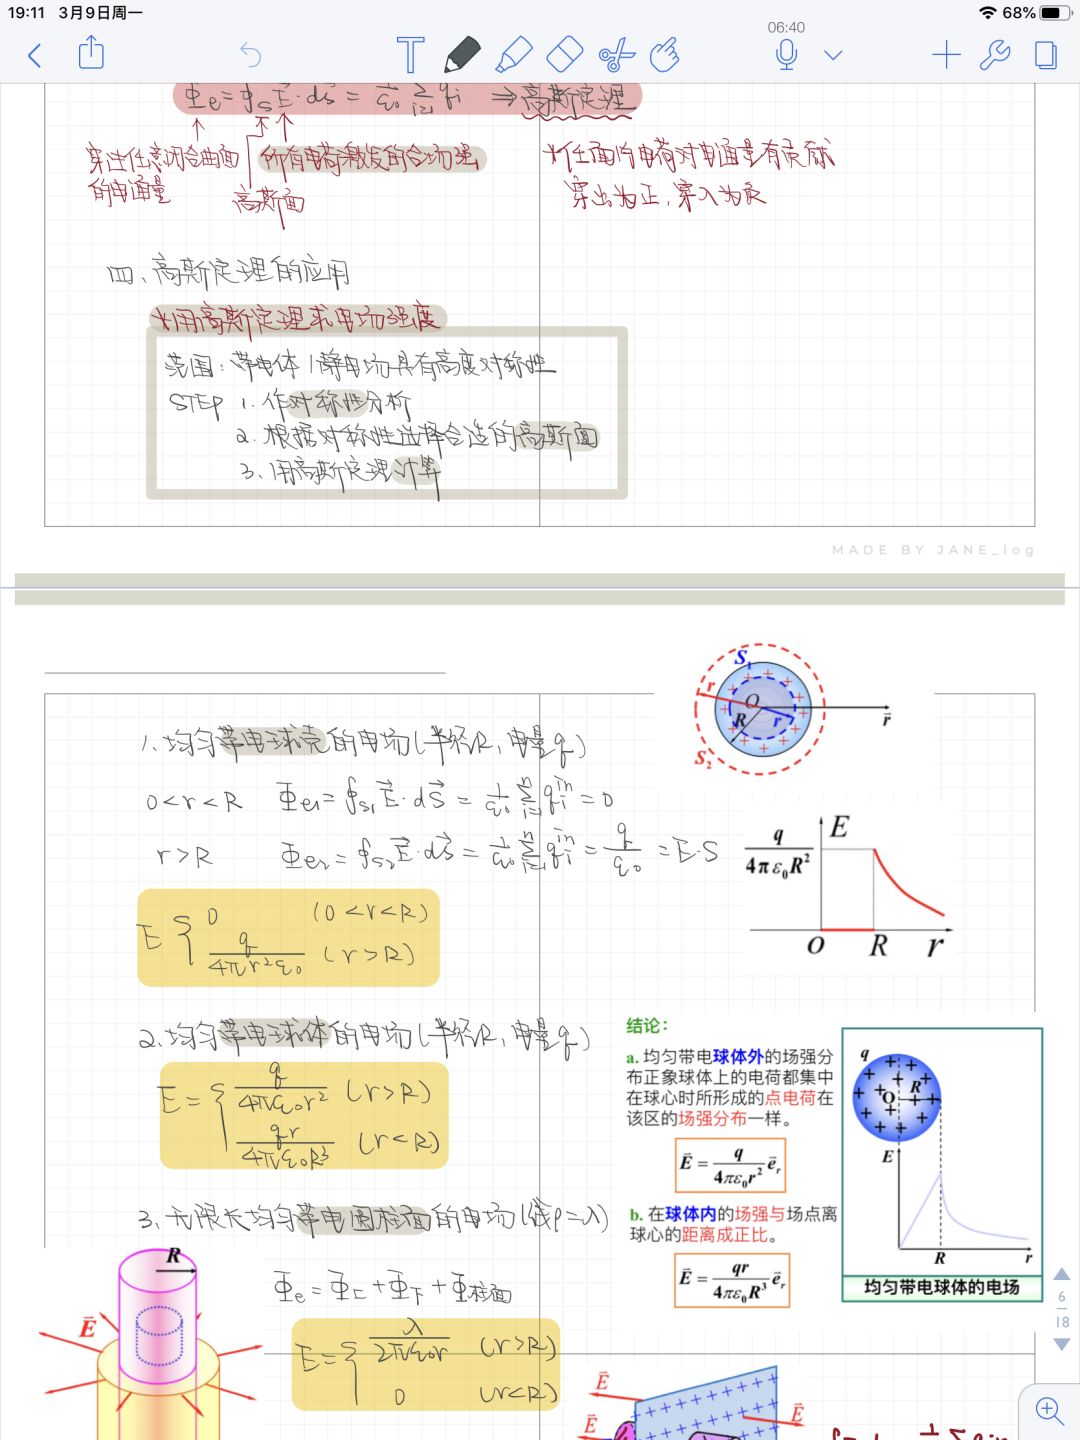 19:11 3月9日周一
68%
06:40
T
Φe=∮s E⃗·dS⃗ = 1/ε₀ Σ qi ⇒高斯定理
穿过任意闭合曲面的电通量
所有电荷激发的合场强
高斯面
*仅面内电荷对电通量有贡献
穿出为正，穿入为负
四、高斯定理的应用
*用高斯定理求电场强度
范围：带电体/静电场具有高度对称性
STEP 1. 作对称性分析
2. 根据对称性选择合适的高斯面
3. 用高斯定理计算
MADE BY JANE_log
S₁
r
O
R
r
r⃗
S₂
1. 均匀带电球壳的电场(半径R, 电量q)
0<r<R Φe1=∮s₁ E⃗·dS⃗ = 1/ε₀ Σ(i=1→n) qi^in = 0
r>R Φe2=∮s₂ E⃗·dS⃗ = 1/ε₀ Σ(i=1→n) qi^in = q/ε₀ = E·S
E { 0 (0<r<R)
q/4πr²ε₀ (r>R)
E
q/4πε₀R²
O R r
2. 均匀带电球体的电场(半径R, 电量q)
E= { q/4πε₀r² (r>R)
qr/4πε₀R³ (r<R)
结论：
a. 均匀带电球体外的场强分
布正象球体上的电荷都集中
在球心时所形成的点电荷在
该区的场强分布一样。
E⃗ = q/4πε₀r² e⃗r
b. 在球体内的场强与场点离
球心的距离成正比。
E⃗ = qr/4πε₀R³ e⃗r
q
R
O
E
R r
均匀带电球体的电场
3. 无限长均匀带电圆柱面的电场(线ρ=λ)
Φe=Φ上+Φ下+Φ柱面
E= { λ/2πε₀r (r>R)
0 (r<R)
R
E⃗
E⃗
E⃗
E⃗
6
18